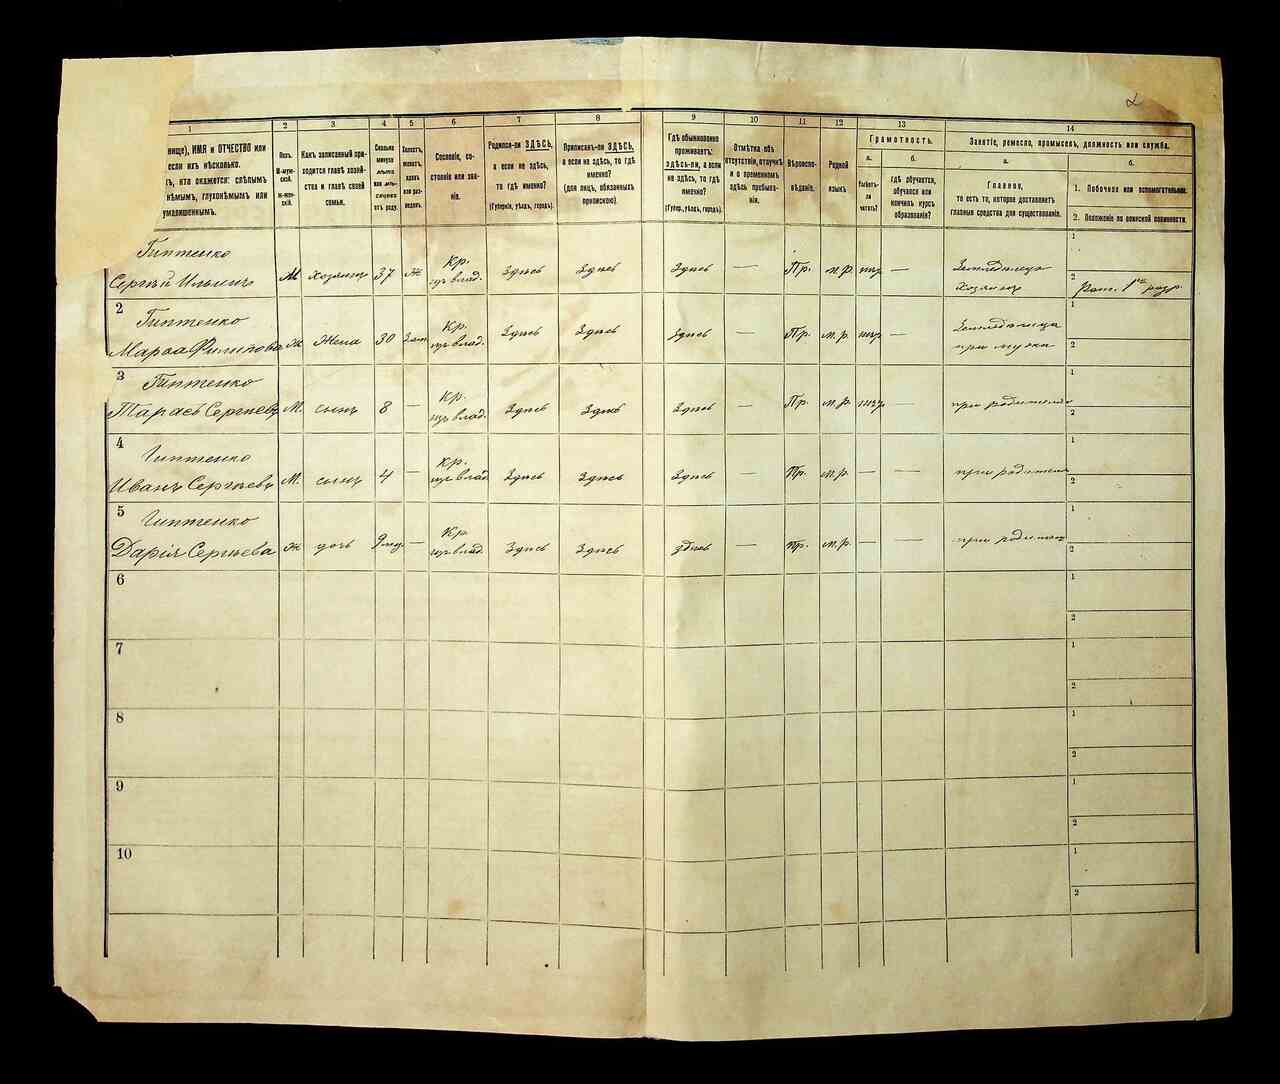 1 2 3 4 5 6 7 8 9 10 11 12 13 14
нище), ИМЯ и ОТЧЕСТВО или
если ихъ нѣсколько.
ъ, кто окажется: слѣпымъ
нѣмымъ, глухонѣмымъ или
умалишеннымъ.
Полъ.
М-муж-
ской.
Ж-жен-
скій.
Какъ записанный при-
ходится главѣ хозяй-
ства и главѣ своей
семьи.
Сколько
минуло
лѣтъ
или мѣ-
сяцевъ
отъ роду.
Холостъ,
женатъ,
вдовъ
или раз-
веденъ.
Сословіе, со-
стояніе или зва-
ніе.
Родился-ли ЗДѢСЬ,
а если не здѣсь,
то гдѣ именно?
(Губернія, уѣздъ, городъ).
Приписанъ-ли ЗДѢСЬ,
а если не здѣсь, то гдѣ
именно?
(для лицъ, обязанныхъ
припискою).
Гдѣ обыкновенно
проживаетъ:
здѣсь-ли, а если
не здѣсь, то гдѣ
именно?
(Губер., уѣздъ, городъ).
Отмѣтка объ
отсутствіи, отлучкѣ
и о временномъ
здѣсь пребыва-
ніи.
Вѣроиспо-
вѣданіе.
Родной
языкъ
Грамотность.
а. б.
Умѣетъ-
ли
читать?
гдѣ обучается,
обучался или
кончилъ курсъ
образованія?
Занятіе, ремесло, промыселъ, должность или служба.
а. б.
Главное,
то есть то, которое доставляетъ
главныя средства для существованія.
1. Побочное или вспомогательное.
2. Положеніе по воинской повинности.
Гиптенко
Сергѣй Ильинъ М хозяинъ 37 ж Кр. изъ влад. Здѣсь Здѣсь Здѣсь — Пр. м.р. — Земледѣлецъ
хозяинъ
1
2 Рат. 1го разр.
2 Гиптенко
Марѳа Филипова ж жена 30 Кр. изъ влад. Здѣсь Здѣсь Здѣсь — Пр. м.р. — Земледѣлица
при мужѣ
1
2
3 Гиптенко
Тарасъ Сергѣевъ М. сынъ 8 — Кр. изъ влад. Здѣсь Здѣсь Здѣсь — Пр. м.р. — при родителяхъ
1
2
4 Гиптенко
Иванъ Сергѣевъ М. сынъ 4 — Кр. изъ влад. Здѣсь Здѣсь Здѣсь — Пр. м.р. — — при родител
1
2
5 Гиптенко
Дарія Сергѣева ж дочь 9 мѣс. — Кр. изъ влад. Здѣсь Здѣсь Здѣсь — Пр. м.р. — — при родител
1
2
6
1
2
7
1
2
8
1
2
9
1
2
10
1
2